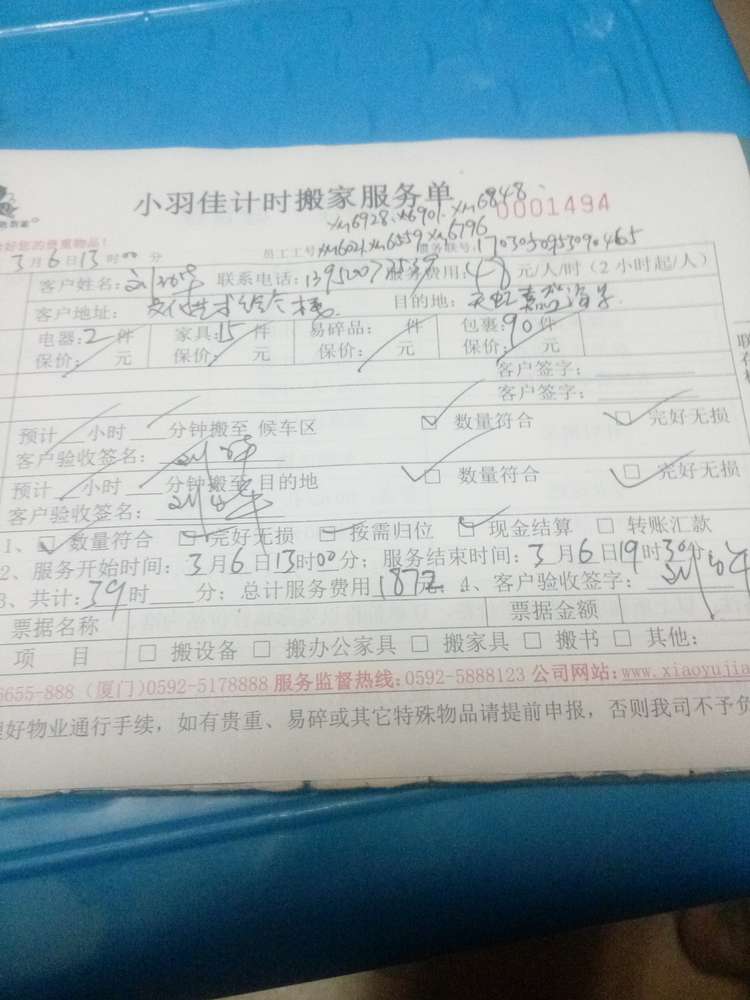 小羽佳计时搬家服务单
0001494
好您的贵重物品!
xm6928. xm6901. xm6848.
员工工号 xm6021 xm6559 xm6796 服务联号: 170305095309 0465
3月6日13时00分
客户姓名: 刘 联系电话: 服务费用: 48 元/人/时 (2小时起/人)
客户地址: 文化艺术综合楼 目的地: 天虹
电器: 2 件 家具: 15 件 易碎品: 件 包裹: 90 件
保价: 元 保价: 元 保价: 元 保价: 元
客户签字:
客户签字:
预计 小时 分钟搬至 候车区 ☑ 数量符合 ☑ 完好无损
客户验收签名: 刘
预计 小时 分钟搬至 目的地 ☑ 数量符合 ☑ 完好无损
客户验收签名: 刘
1、☑ 数量符合 ☑ 完好无损 ☑ 按需归位 ☑ 现金结算 □ 转账汇款
2、服务开始时间: 3月6日13时00分; 服务结束时间: 3月6日19时30分
3、共计: 39时 分; 总计服务费用 1872元 4、客户验收签字: 刘
票据名称 票据金额
项 目 □ 搬设备 □ 搬办公家具 □ 搬家具 □ 搬书 □ 其他:
6655-888 (厦门)0592-5178888 服务监督热线:0592-5888123 公司网站:www.xiaoyujia
理好物业通行手续，如有贵重、易碎或其它特殊物品请提前申报，否则我司不予负